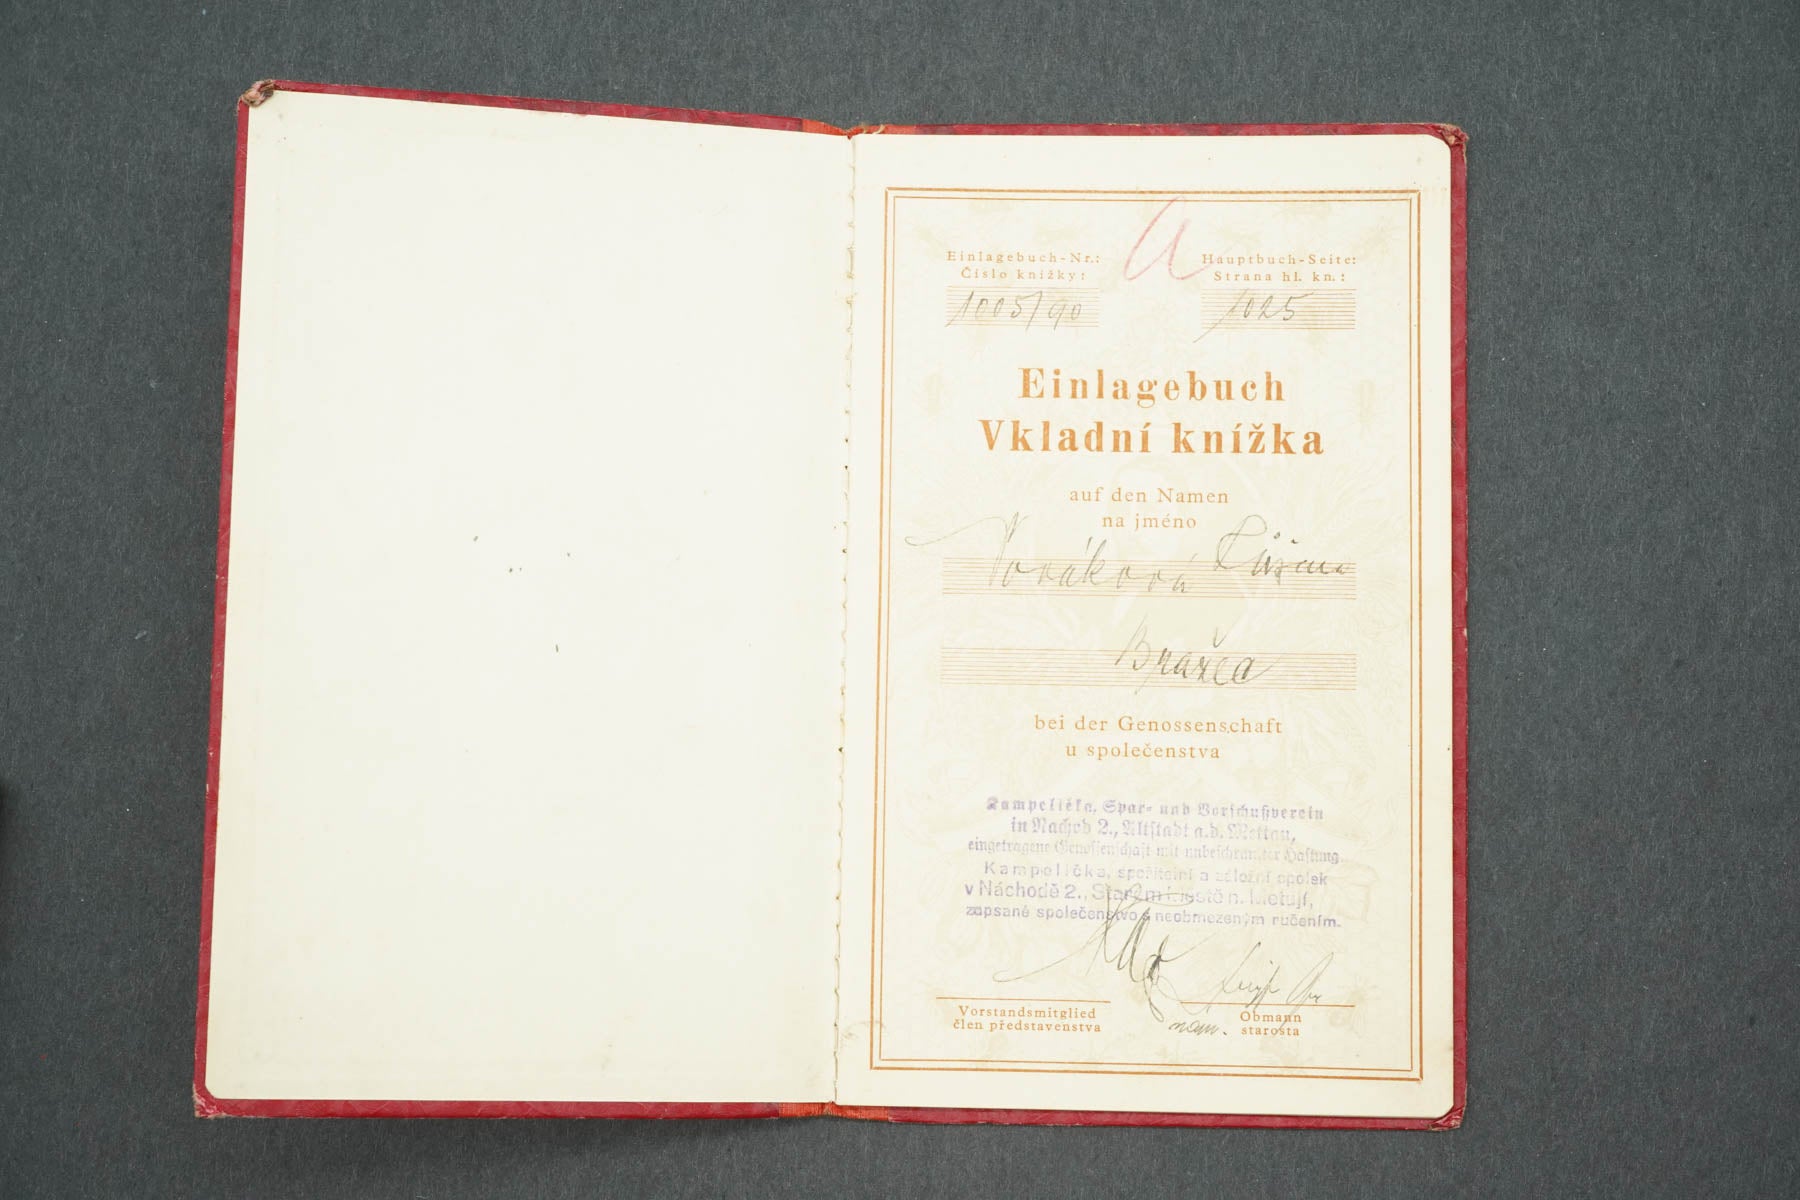 a
Einlagebuch-Nr.:
Číslo knížky:
1005/90
Hauptbuch-Seite:
Strana hl. kn.:
1025
Einlagebuch
Vkladní knížka
auf den Namen
na jméno
Nováková
Bražec
bei der Genossenschaft
u společenstva
Kampelička, Spar- und Vorschußverein
in Nachod 2., Altstadt a.d. Mettau,
eingetragene Genossenschaft mit unbeschränkter Haftung.
Kampelička, spořitelní a záložní spolek
v Náchodě 2., Starém městě n. Metují,
zapsané společenstvo s neobmezeným ručením.
Vorstandsmitglied
člen představenstva
nám.
Obmann
starosta